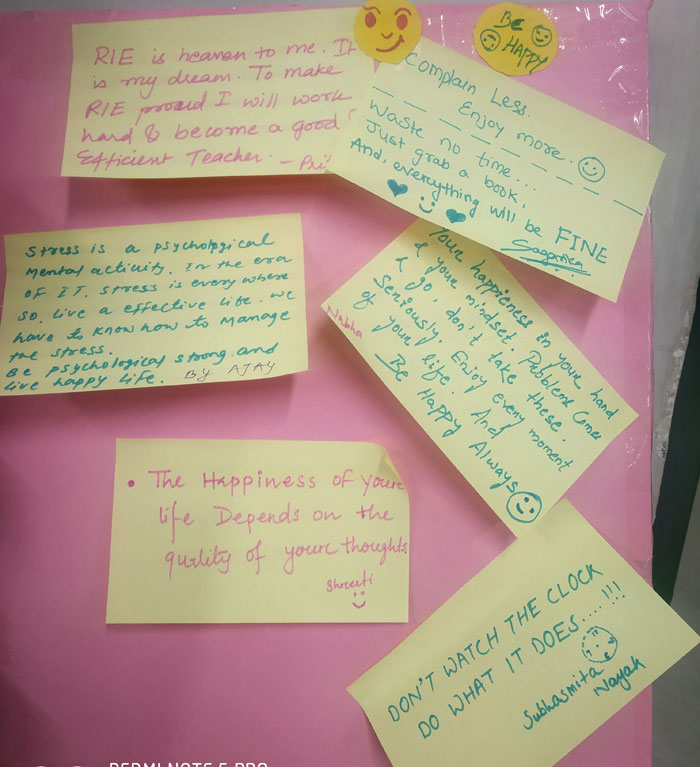 RIE is heaven to me. It
is my dream. To make
RIE proud I will work
hard & become a good
Efficient Teacher.
BE
HAPPY
Complain Less.
Enjoy more.
Waste no time...
Just grab a book,
And, everything will be FINE
Sagarika
Stress is a psychological
mental activity. In the era
of IT. stress is every where
so. live a effective life. we
have to know how to manage
the stress.
Be psychological strong and
live happy life. BY AJAY
Your happieness in your hand
& your mindset. Problems Comes
& go, don't take these.
Seriously. Enjoy every moment
of your life. And
Be Happy Always
Nabha
• The Happiness of youre
life Depends on the
quality of youre thoughts
Shreeti
DON'T WATCH THE CLOCK
DO WHAT IT DOES....!!!
Subhasmita
Nayak
REDMI NOTE 5 PRO